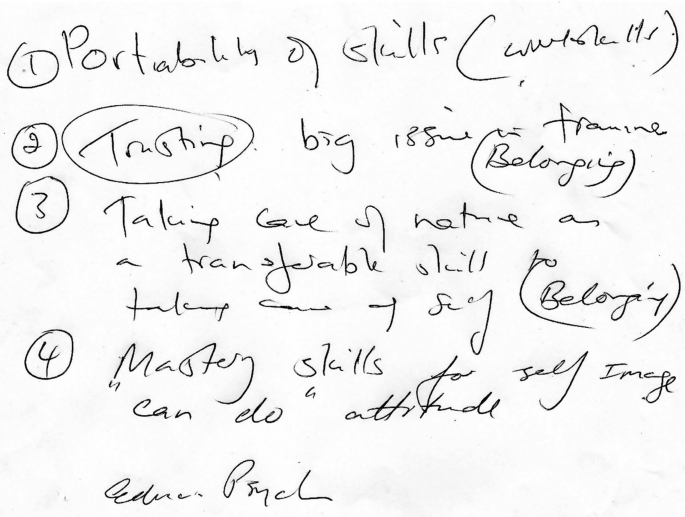 ① Portability of skills (
② Trusting. big issue in
(Belonging)
③ Taking care of nature as
a transferable skill to
taking care of self (Belonging)
④ "Mastery skills for self Image
"can do" attitude
Psych